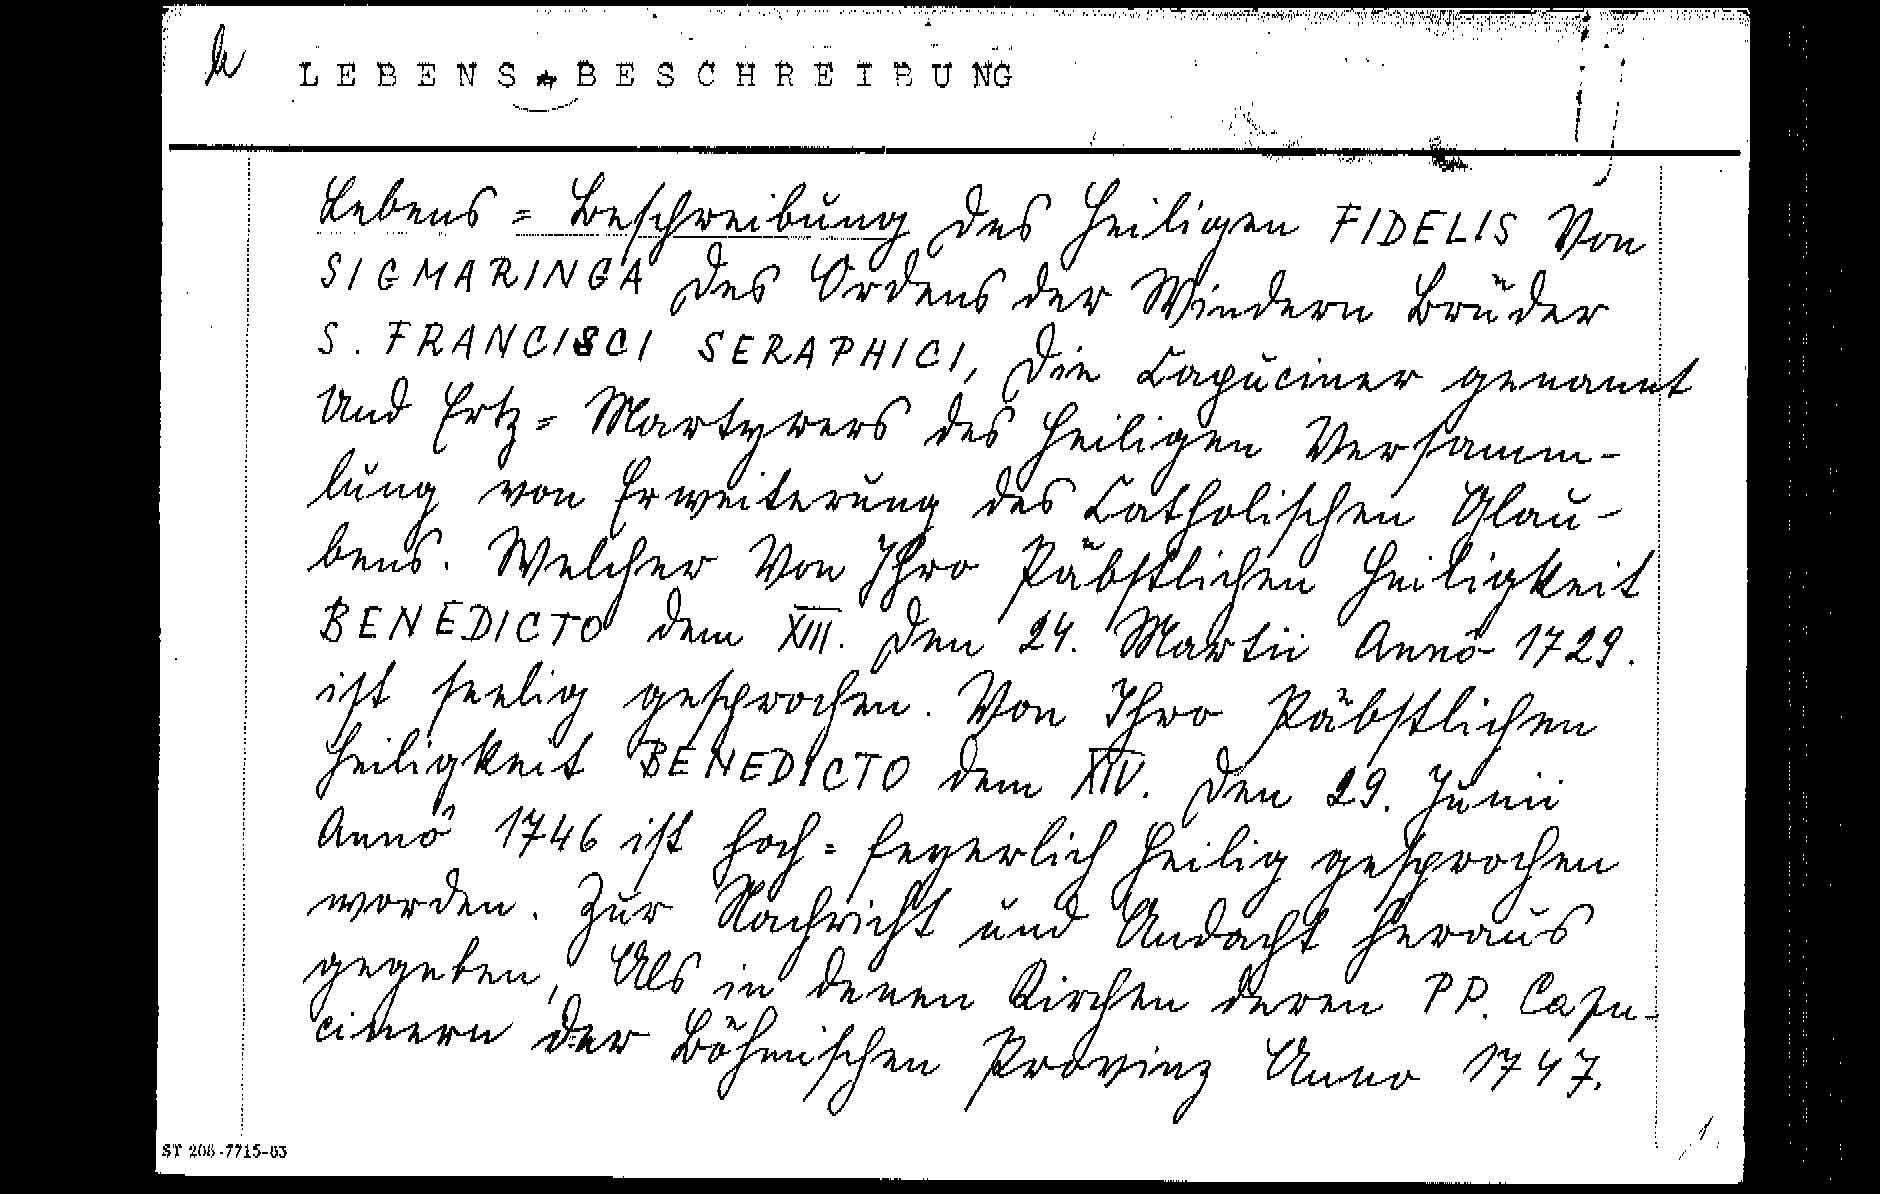 h LEBENS-BESCHREIBUNG
Lebens = Beschreibung des Heiligen FIDELIS Von
SIGMARINGA des Ordens der Mindern Brüder
S. FRANCISCI SERAPHICI, die Capuciner genannt
Und Ertz = Martyrers des Heiligen Versamm-
lung von Erweiterung des Catholischen Glau-
bens. Welcher Von Ihro Päbstlichen Heiligkeit
BENEDICTO dem XIII. den 24. Martii Annô 1729.
ist seelig gesprochen. Von Ihro Päbstlichen
Heiligkeit BENEDICTO dem XIV. den 29. Junii
Annô 1746 ist hoch = feyerlich heilig gesprochen
worden. Zur Nachricht und Andacht heraus
gegeben, Als in denen Kirchen deren PP. Capu-
cinern der Böhmischen Provinz Anno 1747.
ST 208-7715-63
1.